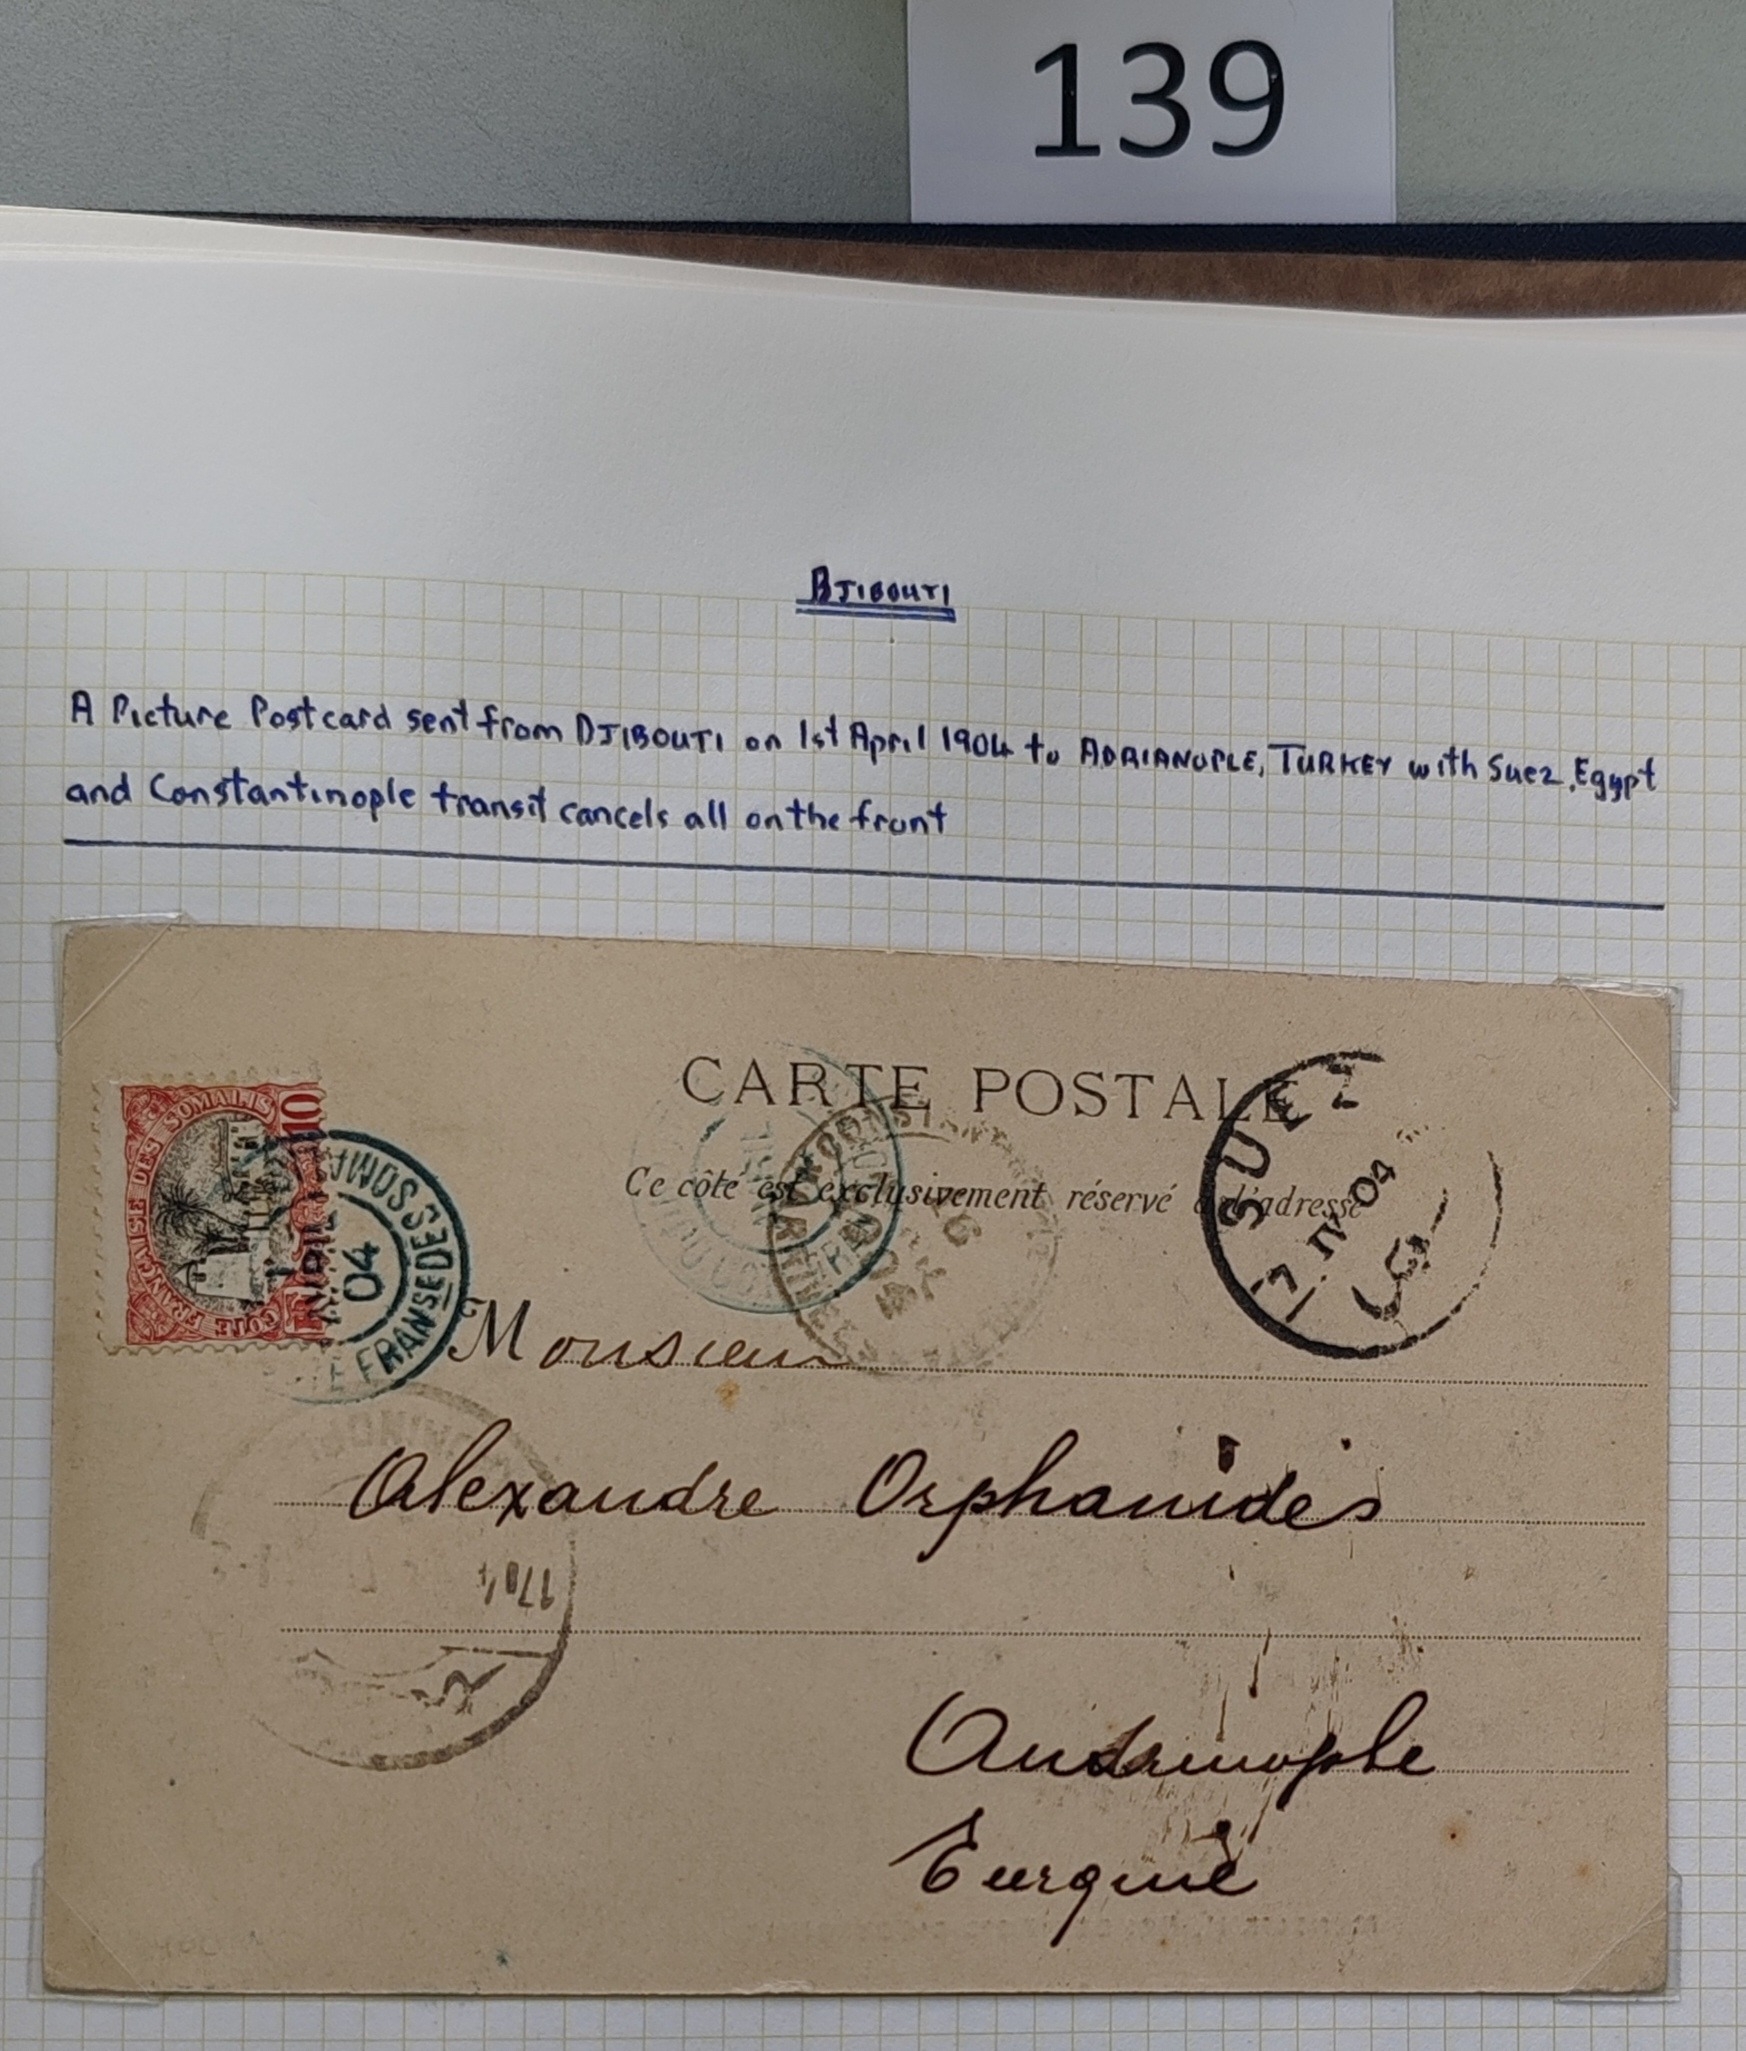 139
DJIBOUTI
A Picture Postcard sent from DJIBOUTI on 1st April 1904 to ADRIANOPLE, TURKEY with Suez, Egypt
and Constantinople transit cancels all on the front
CARTE POSTALE
Ce côté est exclusivement réservé à l'adresse
COTE FRANÇAISE DES SOMALIS
10
AVRIL
04
FRANSE DES SOMA
CONSTAN
SUEZ
7 IV 04
Monsieur
Alexandre Orphanidès
Andrinople
Turquie